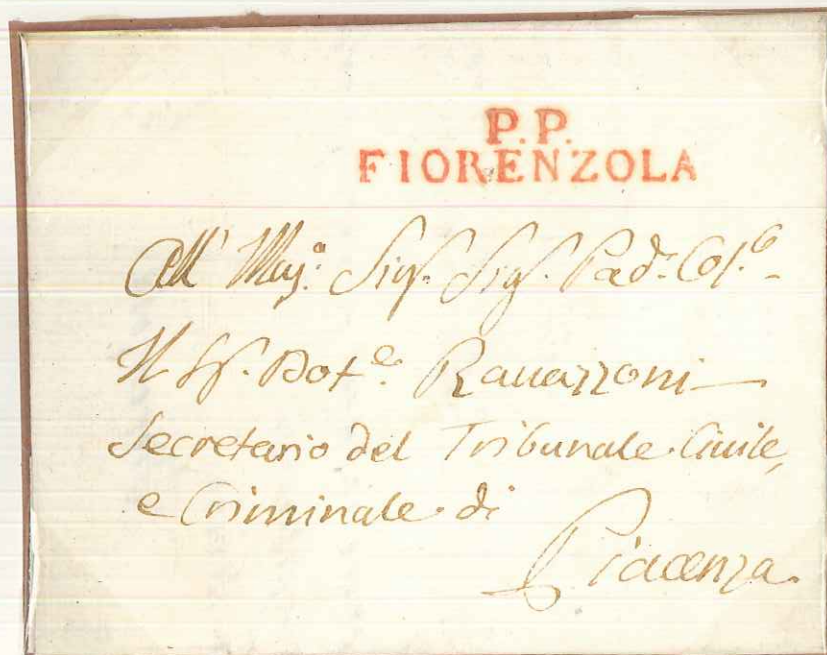 P. P.
FIORENZOLA
All' Sigr. Sigr. Pad. Col.
Il Sr. Dot.e Ravazzoni
Secretario del Tribunale Civile,
e Criminale di
Piacenza.